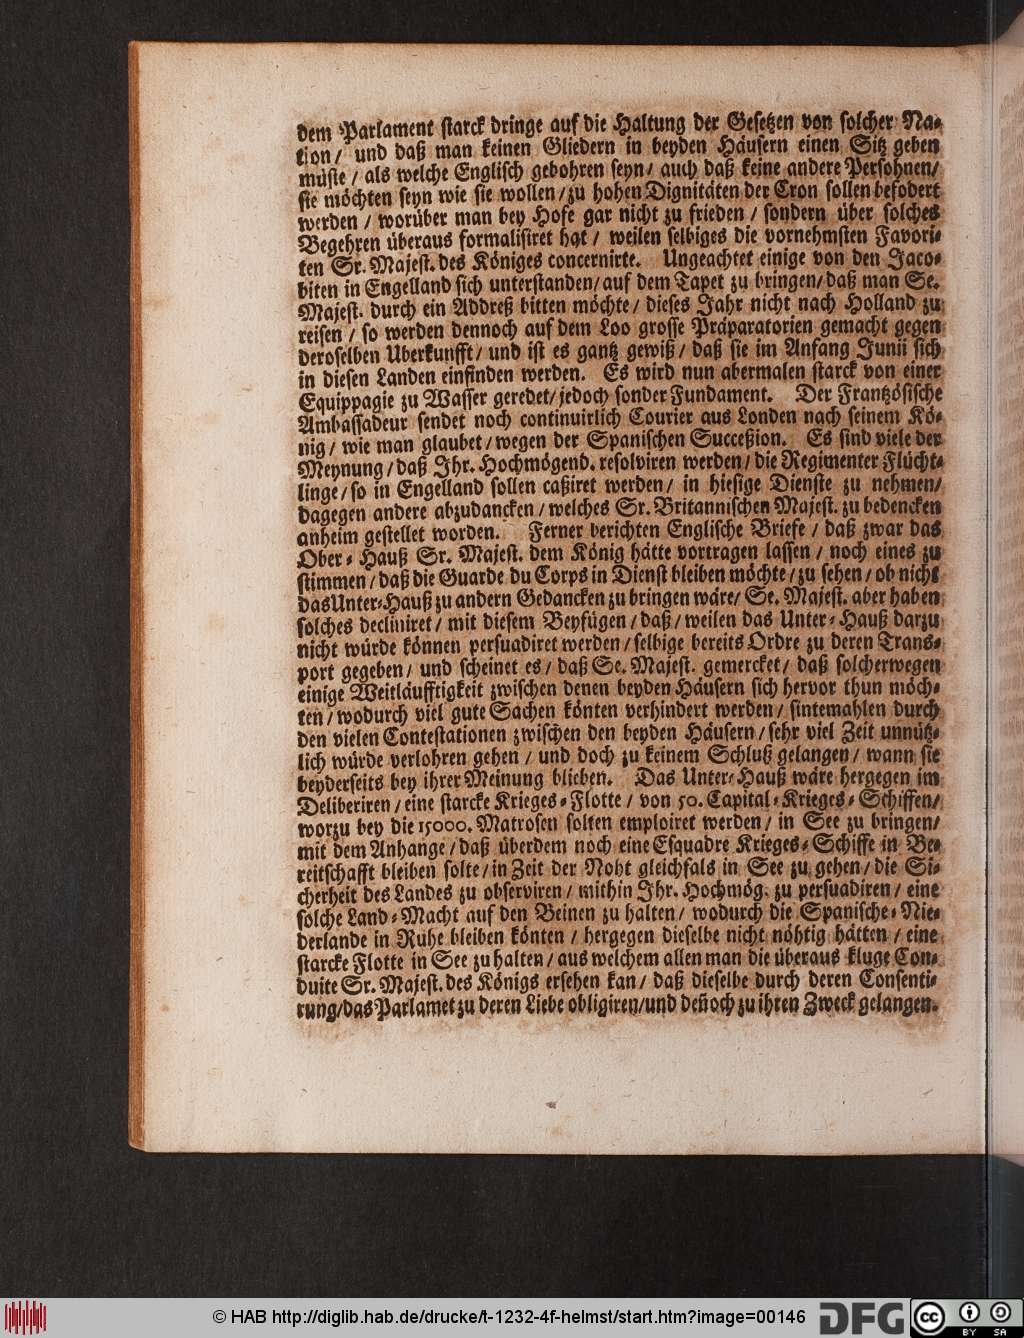 dem Parlament starck dringe auf die Haltung der Gesetzen von solcher Na-
tion / und daß man keinen Gliedern in beyden Häusern einen Sitz geben
müste / als welche Englisch gebohren seyn / auch daß keine andere Persohnen /
sie möchten seyn wie sie wollen / zu hohen Dignitäten der Cron sollen befodert
werden / worüber man bey Hofe gar nicht zu frieden / sondern über solches
Begehren überaus formalisiret hat / weilen selbiges die vornehmsten Favori-
ten Sr. Majest. des Königes concernirte. Ungeachtet einige von den Jaco-
biten in Engelland sich unterstanden / auf dem Tapet zu bringen / daß man Se.
Majest. durch ein Addreß bitten möchte / dieses Jahr nicht nach Holland zu
reisen / so werden dennoch auf dem Loo grosse Präparatorien gemacht gegen
deroselben Uberkunfft / und ist es gantz gewiß / daß sie im Anfang Junii sich
in diesen Landen einfinden werden. Es wird nun abermalen starck von einer
Equippagie zu Wasser geredet / jedoch sonder Fundament. Der Frantzösische
Ambassadeur sendet noch continuirlich Courier aus Londen nach seinem Kö-
nig / wie man glaubet / wegen der Spanischen Succeßion. Es sind viele der
Meynung / daß Ihr. Hochmögend. resolviren werden / die Regimenter Flücht-
linge / so in Engelland sollen caßiret werden / in hiesige Dienste zu nehmen /
dagegen andere abzudancken / welches Sr. Britannischen Majest. zu bedencken
anheim gestellet worden. Ferner berichten Englische Briefe / daß zwar das
Ober-Hauß Sr. Majest. dem König hätte vortragen lassen / noch eines zu
stimmen / daß die Guarde du Corps in Dienst bleiben möchte / zu sehen / ob nicht
das Unter-Hauß zu andern Gedancken zu bringen wäre / Se. Majest. aber haben
solches decliniret / mit diesem Beyfügen / daß / weilen das Unter-Hauß darzu
nicht würde können persuadiret werden / selbige bereits Ordre zu deren Trans-
port gegeben / und scheinet es / daß Se. Majest. gemercket / daß solcherwegen
einige Weitläufftigkeit zwischen denen beyden Häusern sich hervor thun möch-
ten / wodurch viel gute Sachen könten verhindert werden / sintemahlen durch
den vielen Contestationen zwischen den beyden Häusern / sehr viel Zeit unnütz-
lich würde verlohren gehen / und doch zu keinem Schluß gelangen / wann sie
beyderseits bey ihrer Meinung blieben. Das Unter-Hauß wäre hergegen im
Deliberiren / eine starcke Krieges-Flotte / von 50. Capital-Krieges-Schiffen /
worzu bey die 15000. Matrosen solten emploiret werden / in See zu bringen /
mit dem Anhange / daß überdem noch eine Esquadre Krieges-Schiffe in Be-
reitschafft bleiben solte / in Zeit der Noht gleichfals in See zu gehen / die Si-
cherheit des Landes zu observiren / mithin Ihr. Hochmög. zu persuadiren / eine
solche Land-Macht auf den Beinen zu halten / wodurch die Spanische-Nie-
derlande in Ruhe bleiben könten / hergegen dieselbe nicht nöhtig hätten / eine
starcke Flotte in See zu halten / aus welchem allen man die überaus kluge Con-
duite Sr. Majest. des Königs ersehen kan / daß dieselbe durch deren Consenti-
rung / das Parlamet zu deren Liebe obligiren / und deñoch zu ihren Zweck gelangen.
© HAB http://diglib.hab.de/drucke/t-1232-4f-helmst/start.htm?image=00146 DFG cc BY SA